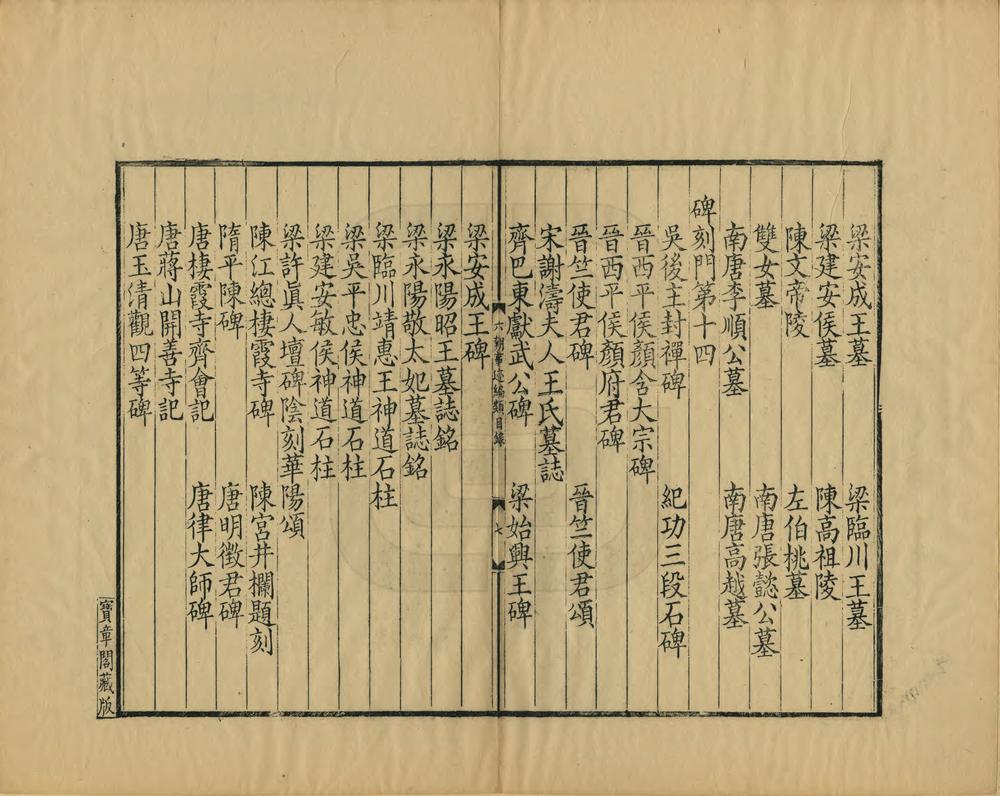 梁安成王墓　梁臨川王墓
梁建安侯墓　陳高祖陵
陳文帝陵　左伯桃墓
雙女墓　南唐張懿公墓
南唐李順公墓　南唐高越墓
碑刻門第十四
吳後主封禪碑　紀功三段石碑
晉西平侯顏含大宗碑
晉西平侯顏府君碑
晉竺使君碑　晉竺使君頌
宋謝濤夫人王氏墓誌
齊巴東獻武公碑　梁始興王碑
六朝事迹編類目錄　七
梁安成王碑
梁永陽昭王墓誌銘
梁永陽敬太妃墓誌銘
梁臨川靖惠王神道石柱
梁吳平忠侯神道石柱
梁建安敏侯神道石柱
梁許眞人壇碑陰刻華陽頌
陳江總棲霞寺碑　陳宮井欄題刻
隋平陳碑　唐明徵君碑
唐棲霞寺齊會記　唐律大師碑
唐蔣山開善寺記
唐玉清觀四等碑
寶章閣藏版